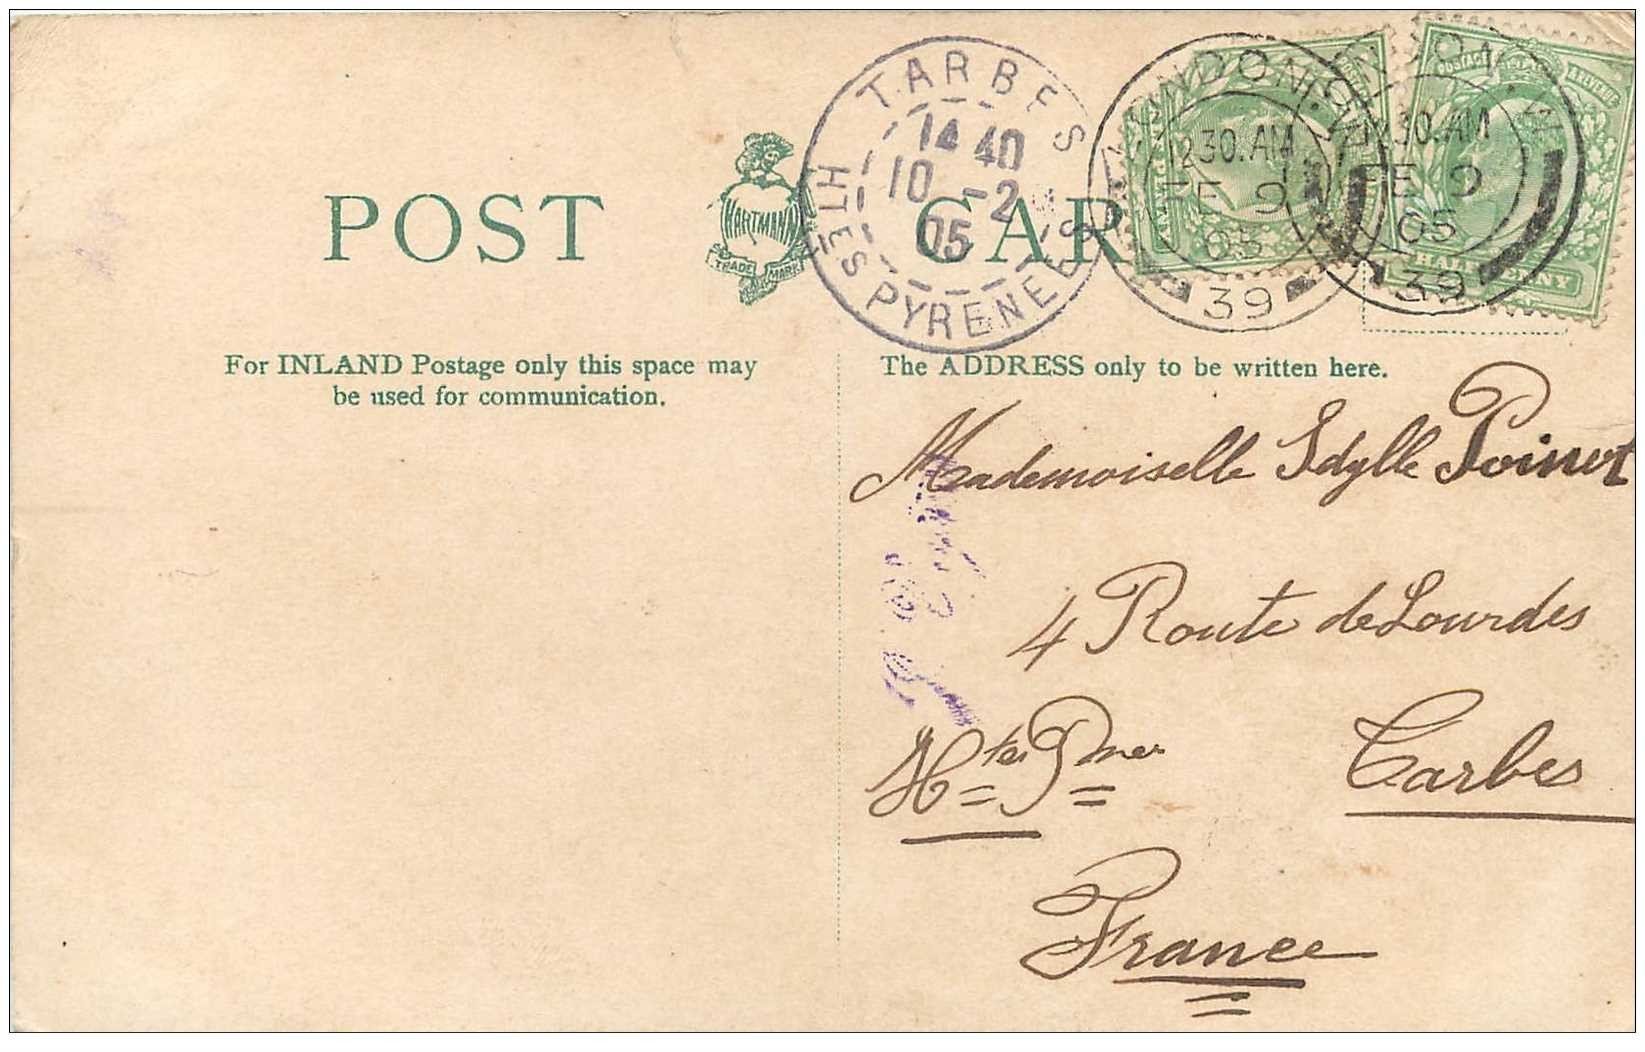 POST CAR
HARTMANN
TRADE MARK
TARBES
14 40
10 -2
05
HTES PYRENEES
LONDON. W
12 30. AM
FE 9
05
39
30. AM
FE 9
05
39
POSTAGE REVENUE
HALF PENNY
For INLAND Postage only this space may
be used for communication.
The ADDRESS only to be written here.
Mademoiselle Idylle Poinot
4 Route de Lourdes
Tarbes
Htes Pnées
France